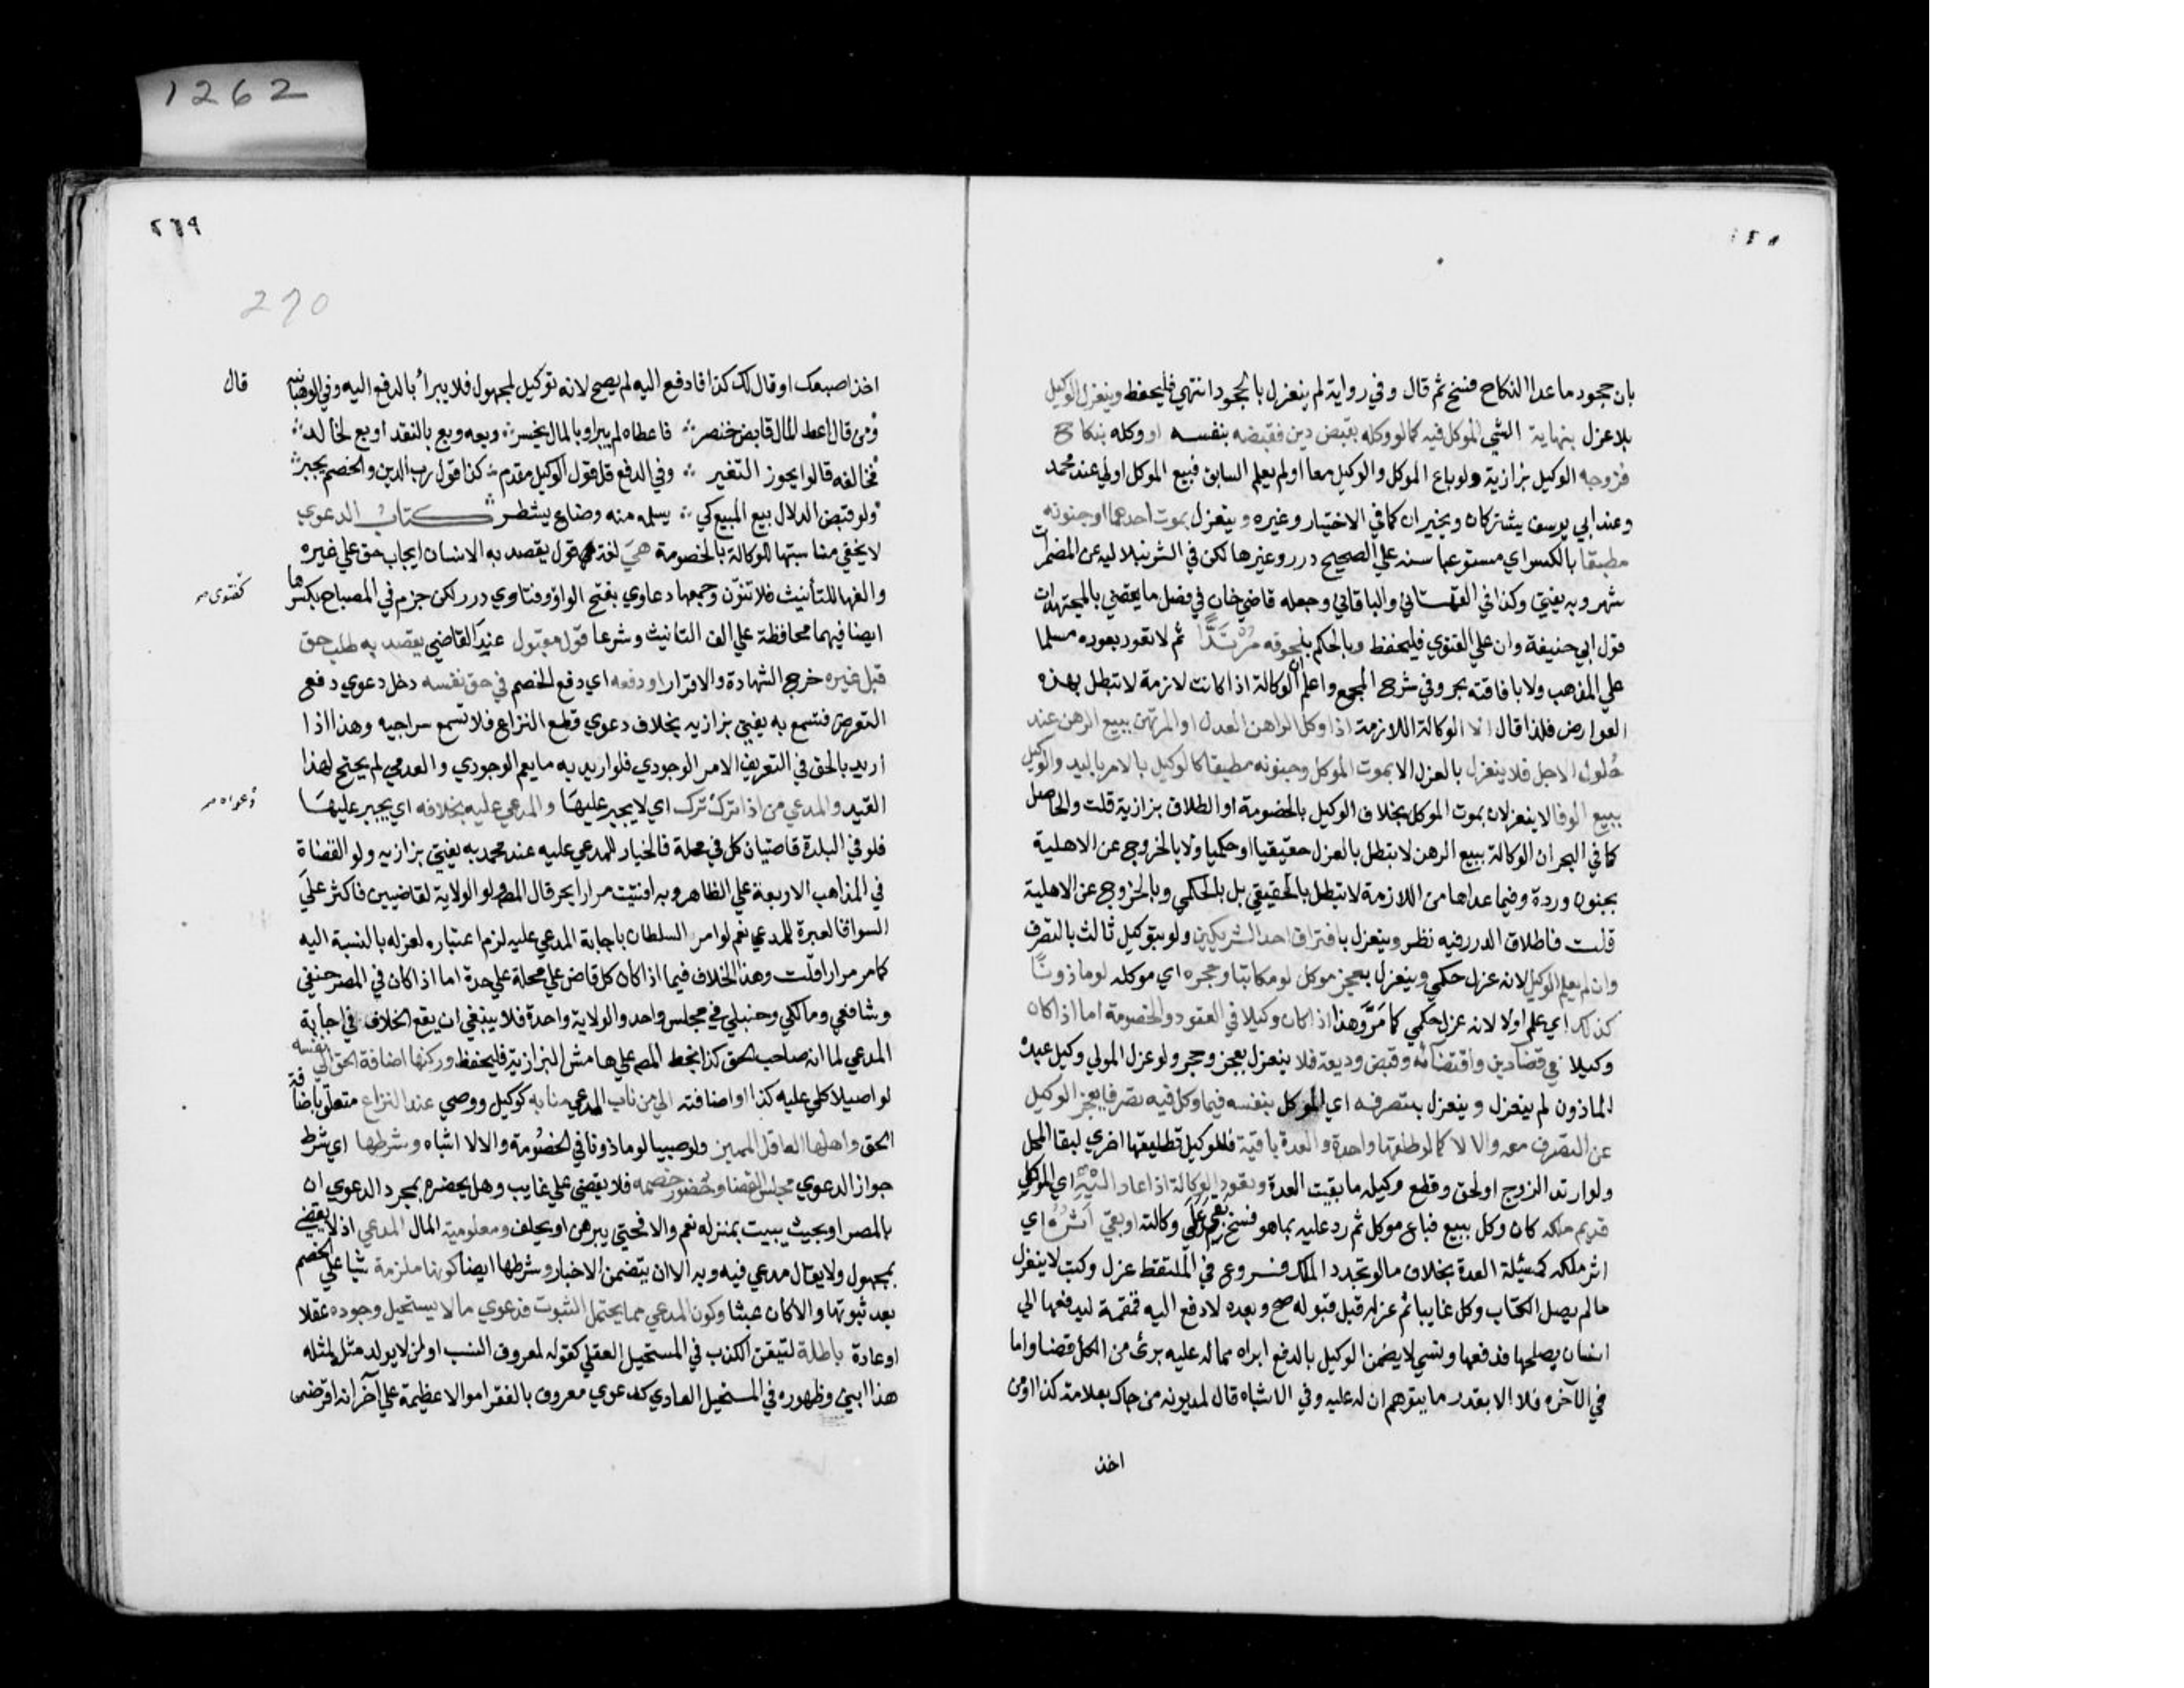 1262
بان جحود ما عدا النكاح فسخ ثم قال وفي رواية لم ينعزل بالجحود انتهي فليحفظ وينعزل الوكيل
بلا عزل بنهاية الشي الموكل فيه كما لو وكله بقبض دين فقبضه بنفسه او وكله بنكاح
فزوجه الوكيل بزازية ولو باع الموكل والوكيل معا او لم يعلم السابق فبيع الموكل اولي عند محمد
وعند ابي يوسف يشتركان ويخيران كما في الاختيار وغيره وينعزل بموت احدهما او جنونه
مطبقا بالكسر اي مستوعبا سنه علي الصحيح درر وغيرها لكن في الشرنبلاليه عن المضمرات
شهر وبه يفتي وكذا في القهستاني والباقاني وجعله قاضي خان في فصل ما يقضي بالمجتهدات
قول ابي حنيفة وان علي الفتوي فليحفظ وبالحكم بلحوقه مرتدا ثم لا تعود بعوده مسلما
علي المذهب ولا بافاقته بحر وفي شرح المجمع واعلم ان الوكالة اذا كانت لازمة لا تبطل بهذه
العوارض فلذا قال الا الوكالة اللازمة اذا وكل الراهن العدل او المرتهن ببيع الرهن عند
حلول الاجل فلا ينعزل بالعزل الا بموت الموكل وجنونه مطبقا كالوكيل بالامر باليد والوكيل
ببيع الوفا لا ينعزلان بموت الموكل بخلاف الوكيل بالخصومة او الطلاق بزازية قلت والحاصل
كما في البحر ان الوكالة ببيع الرهن لا تبطل بالعزل حقيقيا او حكميا ولا بالخروج عن الاهلية
بجنون وردة وفيما عداها من اللازمة لا تبطل بالحقيقي بل بالحكمي وبالخروج عن الاهلية
قلت فاطلاق الدرر فيه نظر وينعزل بافتراق احد الشريكين ولو بتوكيل ثالث بالتصرف
وان لم يعلم الوكيل لانه عزل حكمي وينعزل بعجز موكل لو مكاتبا وحجره اي موكله لو ماذونا
كذلك اي علم اولا لانه عزل حكمي كما مر وهذا اذا كان وكيلا في العقود والخصومة اما اذا كان
وكيلا في قضا دين واقتضائه وقبض وديعة فلا ينعزل بعجز وحجر ولو عزل المولي وكيل عبده
الماذون لم ينعزل وينعزل بتصرفه اي الموكل بنفسه فيما وكل فيه تصرفا يعجز الوكيل
عن التصرف معه والا لا كما لو طلقها واحدة والعدة باقية فللوكيل تطليقها اخري لبقا المحل
ولو ارتد الزوج او لحق وقع وكيله ما بقيت العدة وتعود الوكالة اذا عاد اليه اي الموكل
قديم ملكه كان وكل ببيع فباع موكل ثم رد عليه بما هو فسخ بقي علي وكالته او بقي اثره اي
اثر ملكه كمسئلة العدة بخلاف ما لو تجدد الملك فروع في الملتقط عزل وكتب لا ينعزل
ما لم يصل الكتاب وكل غايبا ثم عزله قبل قبوله صح وبعده لا دفع اليه قمقمة ليدفعها الي
انسان يصلحها فدفعها ونسي لا يضمن الوكيل بالدفع ابراه مما له عليه برئ من الكل قضا واما
في الآخره فلا الا بقدر ما يتوهم ان له عليه وفي الاشباه قال لمديونه من جاك بعلامة كذا او من
اخذ
٢٦٩
270
اخذ اصبعك او قال لك كذا فادفع اليه لم يصح لانه توكيل لمجهول فلا يبرأ بالدفع اليه وفي الوهبانيه
قال
ومن قال اعط المال قابض خنصر فاعطاه لم يبرا وبالمال يخسر وبعه وبع بالنقد او بع لخالد
فخالفه قالوا يجوز التغير وفي الدفع قل قول الوكيل مقدم كذا قول رب الدين والخصم يجبر
ولو قبض الدلال بيع المبيع كي يسلمه منه وضاع يشطر كتاب الدعوي
لا يخفي مناسبتها للوكالة بالخصومة هي لغة قول يقصد به الانسان ايجاب حق علي غيره
والفها للتأنيث فلا تنون وجمعها دعاوي بفتح الواو وفتاوي درر لكن جزم في المصباح بكسرها
كفتوى صح
ايضا فيهما محافظة علي الف التانيث وشرعا قول مقبول عند القاضي يقصد به طلب حق
قبل غيره خرج الشهادة والاقرار او دفعه اي دفع الخصم في حق نفسه دخل دعوي دفع
التعرض فتسمع به يفتي بزازيه بخلاف دعوي قطع النزاع فلا تسمع سراجيه وهذا اذا
اريد بالحق في التعريف الامر الوجودي فلو اريد به ما يعم الوجودي والعدمي لم يحتج لهذا
القيد والمدعي من اذا ترك ترك اي لا يجبر عليها والمدعي عليه بخلافه اي يجبر عليها
دعواه صح
فلو في البلدة قاضيان كل في محلة فالخيار للمدعي عليه عند محمد به يفتي بزازيه ولو القضاة
في المذاهب الاربعة علي الظاهر وبه افتيت مرارا بحر قال المص ولو الولاية لقاضيين فاكثر علي
السوا فالعبرة للمدعي نعم لو امر السلطان باجابة المدعي عليه لزم اعتباره لعزله بالنسبة اليه
كما مر مرارا قلت وهذا الخلاف فيما اذا كان كل قاض علي محلة علي حدة اما اذا كان في المصر حنفي
وشافعي ومالكي وحنبلي في مجلس واحد والولاية واحدة فلا ينبغي ان يقع الخلاف في اجابة
المدعي لما انه صاحب الحق كذا بخط المص علي هامش البزازية فليحفظ وركنها اضافة الحق الي نفسه
لو اصيلا كلي عليه كذا او اضافته الي من ناب المدعي منابه كوكيل ووصي عند النزاع متعلق باضافة
الحق واهلها العاقل المميز ولو صبيا لو ماذونا في الخصومة والا لا اشباه وشرطها اي شرط
جواز الدعوي مجلس القضا وحضور خصمه فلا يقضي علي غايب وهل يحضره بمجرد الدعوي ان
بالمصر او بحيث يبيت بمنزله نعم والا فحتي يبرهن او يحلف ومعلومية المال المدعي اذ لا يقضي
بمجهول ولا يقال مدعي فيه وبه الا ان يتضمن الاخبار وشرطها ايضا كونها ملزمة شيا علي الخصم
بعد ثبوتها والا كان عبثا وكون المدعي مما يحتمل الثبوت فدعوي ما لا يستحيل وجوده عقلا
او عادة باطلة لتيقن الكذب في المستحيل العقلي كقوله لمعروف النسب او لمن لا يولد مثله لمثله
هذا ابني وظهوره في المستحيل العادي كدعوي معروف بالفقر اموالا عظيمة علي آخر انه اقرضى